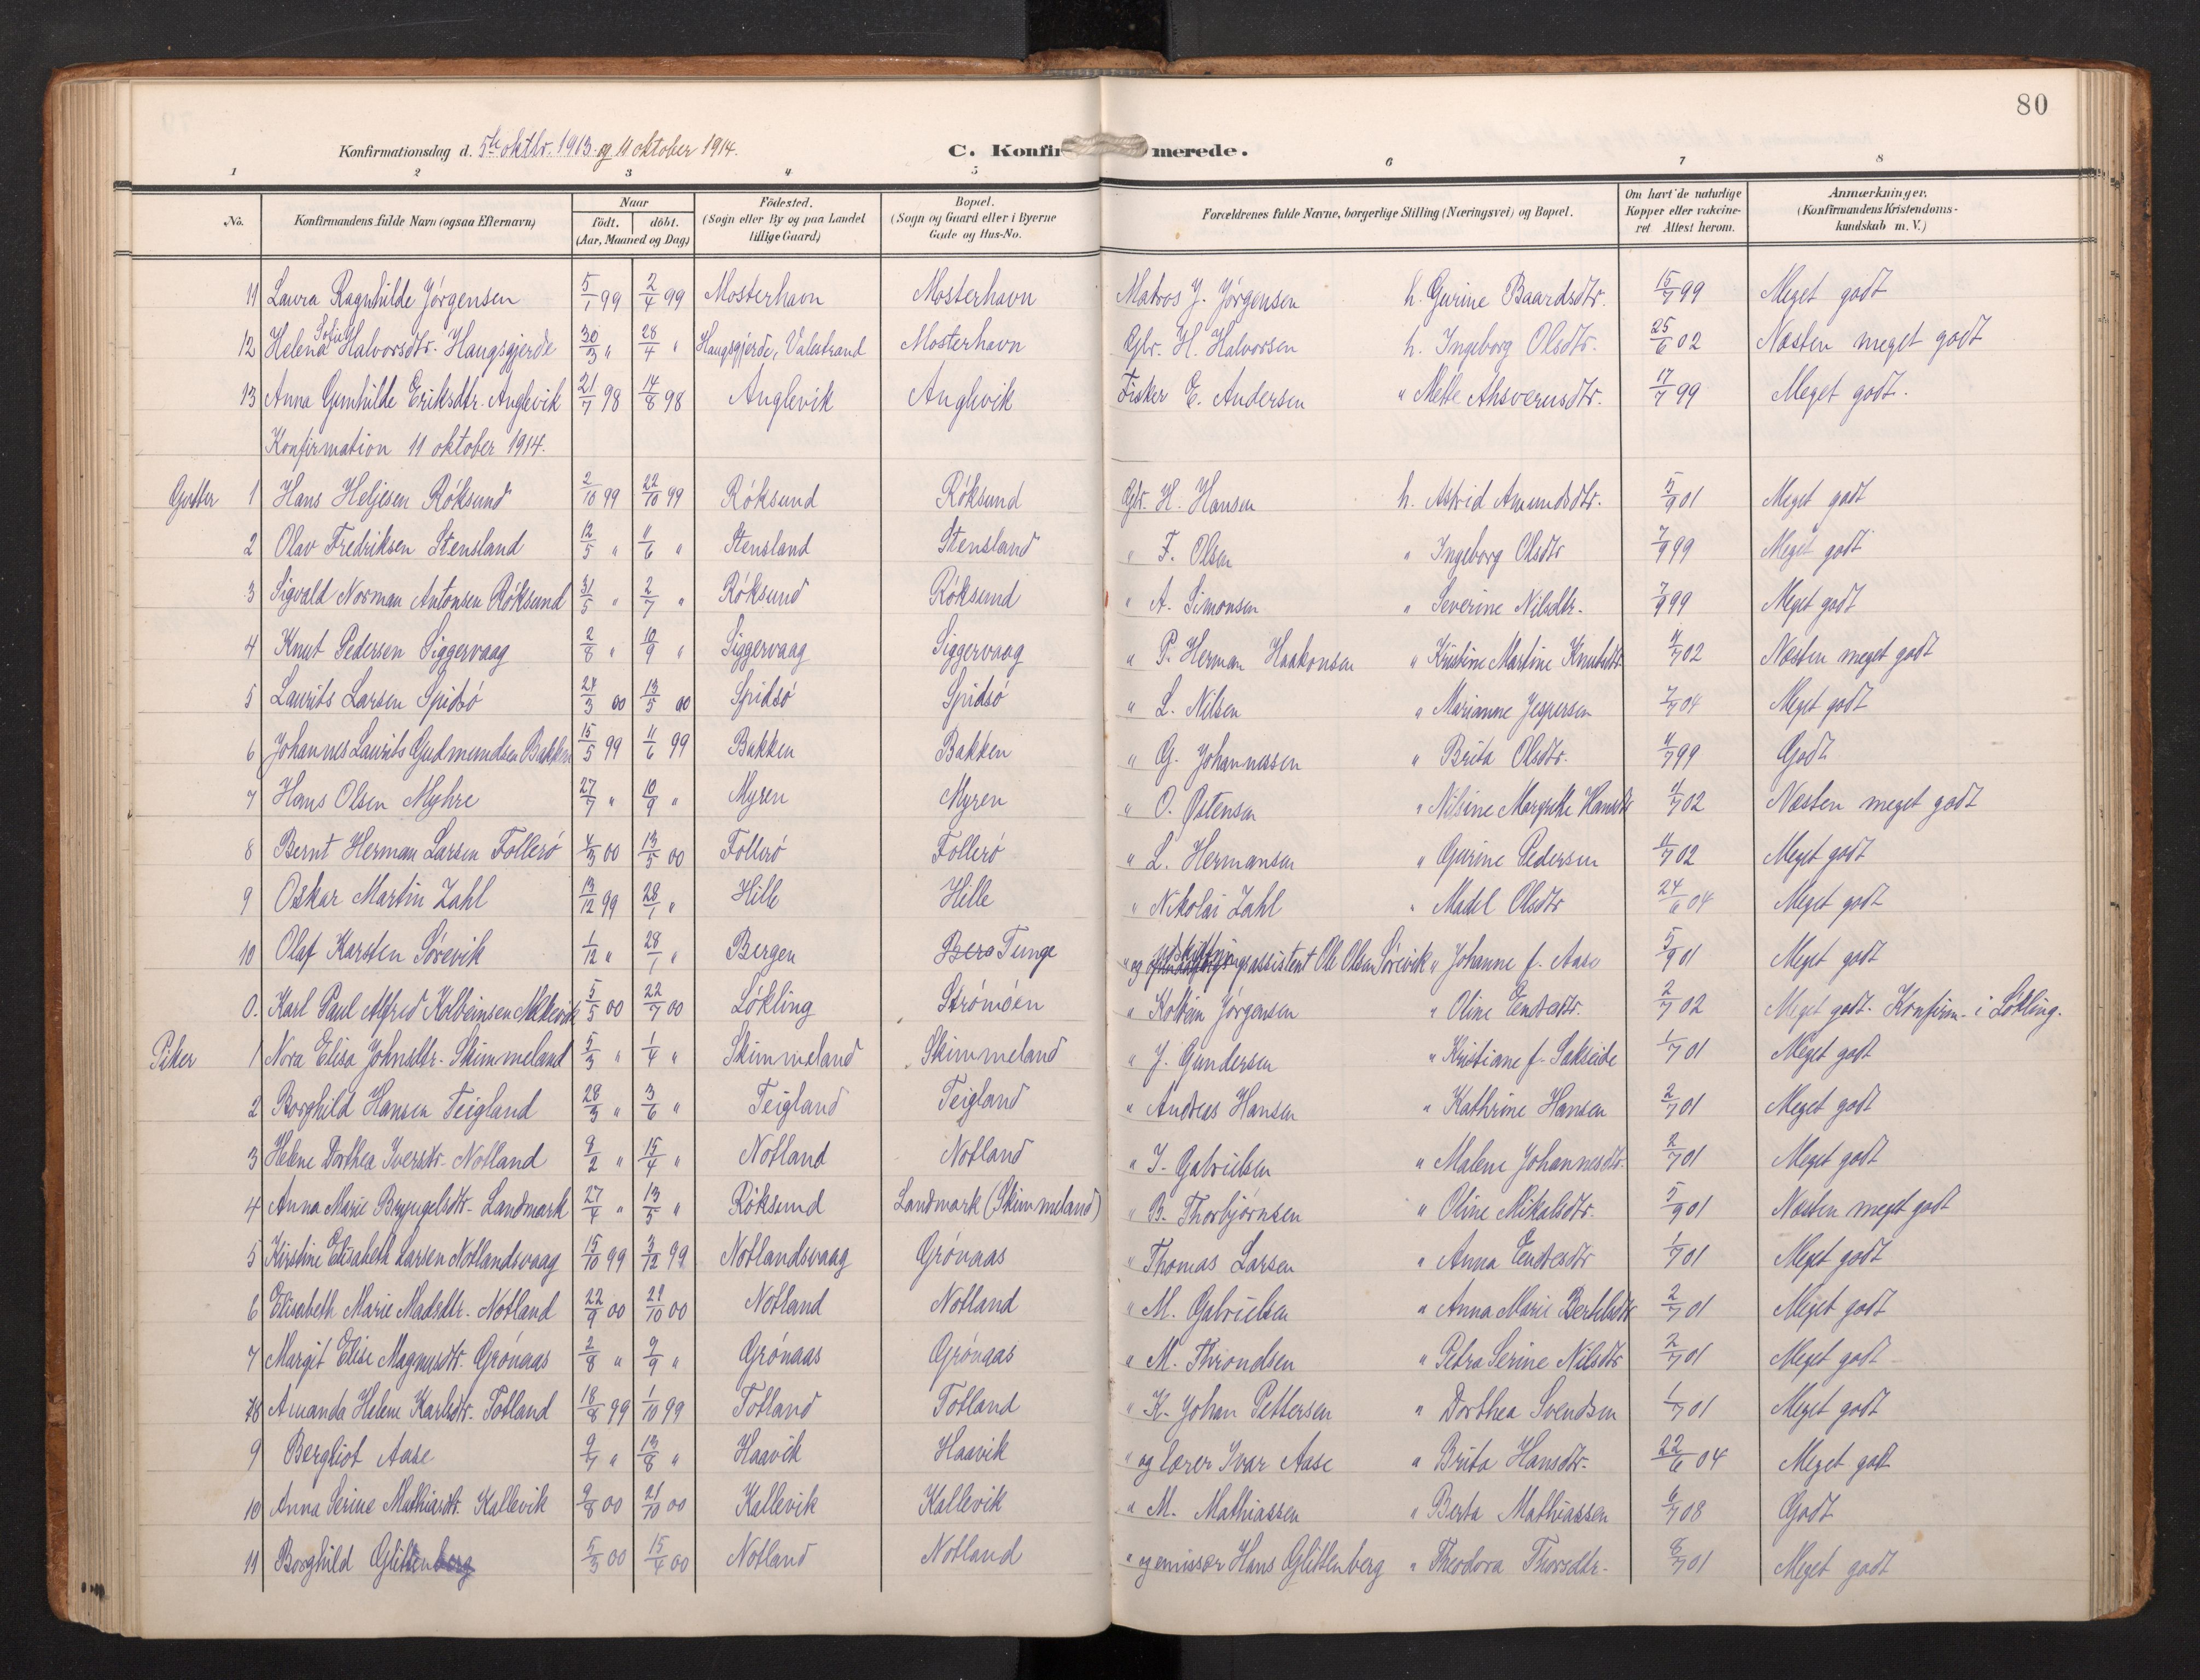 80
Konfirmationsdag d. 5te oktbr. 1913 og 11 oktober 1914.
C. Konfirmerede.
1 2 3 4 5 6 7 8
No. Konfirmandens fulde Navn (ogsaa Efternavn) Naar født. døbt. (Aar, Maaned og Dag) Fødested. (Sogn eller By og paa Landet tillige Gaard) Bopæl. (Sogn og Gaard eller i Byerne Gade og Hus-No. Forældrenes fulde Navne, borgerlige Stilling (Næringsvei) og Bopæl. Om havt de naturlige Kopper eller vakcineret. Attest herom. Anmærkninger. (Konfirmandens Kristendomskundskab m. V.)
11 Laura Ragnhilde Jørgensen 5/1 99 2/4 99 Mosterhavn Mosterhavn Matros J. Jørgensen h. Gurine Baardsdtr. 15/7 99 Meget godt
12 Helena Sofie Halvorsdtr. Haugsgjerde 30/3 " 28/4 " Haugsgjerde, Valestrand Mosterhavn Gbr. H. Halvorsen h. Ingeborg Olsdtr. 25/6 02 Næsten meget godt
13 Anna Gunhilde Eriksdtr. Anglevik 21/7 98 14/8 98 Anglevik Anglevik Fisker E. Andersen " Mette Ahsverusdtr. 17/7 99 Meget godt.
Konfirmation 11 oktober 1914.
Gutter 1 Hans Heljesen Røksund 2/10 99 22/10 99 Røksund Røksund Gbr. H. Hansen h. Astrid Amundsdtr. 5/9 01 Meget godt
2 Olav Fredriksen Stensland 12/5 " 11/6 " Stensland Stensland " F. Olsen " Ingeborg Olsdtr 7/9 99 Meget godt
3 Sigvald Norman Antonsen Røksund 31/5 " 2/7 " Røksund Røksund " A. Simonsen " Severine Nilsdtr. 7/9 99 Meget godt
4 Knut Pedersen Siggervaag 2/8 " 10/9 " Siggervaag Siggervaag " P. Herman Haakonsen " Kristine Martine Knutsdtr 4/7 02 Næsten meget godt
5 Laurits Larsen Spidsø 24/3 00 13/5 00 Spidsø Spidsø " L. Nilsen " Marianne Jespersen 7/7 04 Meget godt
6 Johannes Laurits Gudmundsen Bakken 15/5 99 11/6 99 Bakken Bakken " G. Johannessen " Brita Olsdtr. 11/7 99 Godt
7 Hans Olsen Myhre 27/7 " 10/9 " Myren Myren " O. Østensen " Nilsine Margrethe Hansdtr 4/7 02 Næsten meget godt
8 Bernt Herman Larsen Follerø 4/3 00 13/5 00 Follerø Follerø " L. Hermansen " Gurine Pedersen 11/7 02 Meget godt
9 Oskar Martin Zahl 13/12 99 28/1 " Hille Hille " Nikolai Zahl " Madel Olsdtr 24/6 04 Meget godt
10 Olaf Karsten Sørevik 1/12 " 28/1 " Bergen Tunge " og assistent Ole Olsen Sørevik " Johanne f. Aase 5/9 01 Meget godt
0. Karl Paul Alfred Kolbeinsen 5/5 00 22/7 00 Løkling Strømøen " Kolbein Jørgensen " Oline Endresdtr. 2/7 02 Meget godt. Konfirm. i Løkling.
Piker 1 Nora Elisa Johnsdtr. Skimmeland 5/3 " 1/4 " Skimmeland Skimmeland " J. Gundersen " Kristiane f. Sakseide 1/7 01 Meget godt
2 Borghild Hansen Teigland 28/3 " 3/6 " Teigland Teigland " Andreas Hansen " Kathrine Hansen 2/7 01 Meget godt
3 Helene Dorthea Iversdtr. Notland 8/2 " 15/4 " Notland Notland " I. Gabrielsen " Malene Johannesdtr. 2/7 01 Meget godt
4 Anna Marie Bryngelsdtr. Landmark 27/4 " 13/5 " Røksund Landmark (Skimmeland) " B. Thorbjørnsen " Oline Mikalsdtr. 5/9 01 Næsten meget godt
5 Kirstine Elisabeth Larsen Notlandsvaag 15/10 99 3/12 99 Notlandsvaag Grønaas " Thomas Larsen " Anna Endresdtr 1/7 01 Meget godt
6 Elisabeth Marie Madsdtr. Notland 22/9 00 21/10 00 Notland Notland " M. Gabrielsen " Anna Marie Bertelsdtr 2/7 01 Meget godt
7 Margit Elise Magnusdtr. Grønaas 2/8 " 9/9 " Grønaas Grønaas " M. Throndsen " Petra Serine Nilsdtr 2/7 01 Meget godt
8 Amanda Helene Karlsdtr. Totland 18/8 99 1/10 99 Totland Totland " K. Johan Pettersen " Dorthea Svendsen 1/7 01 Meget godt
9 Bergliot Aase 9/7 " 13/8 " Haavik Haavik " og lærer Ivar Aase " Brita Hansdtr. 22/6 04 Meget godt
10 Anna Serine Mathiasdtr. Kallevik 9/8 00 21/10 00 Kallevik Kallevik " M. Mathiassen " Berta Mathiassen 6/7 08 Godt
11 Borghild Glittenberg 5/3 00 15/4 00 Notland Notland " og emissær Hans Glittenberg " Theodora Thorsdtr. 8/7 01 Meget godt